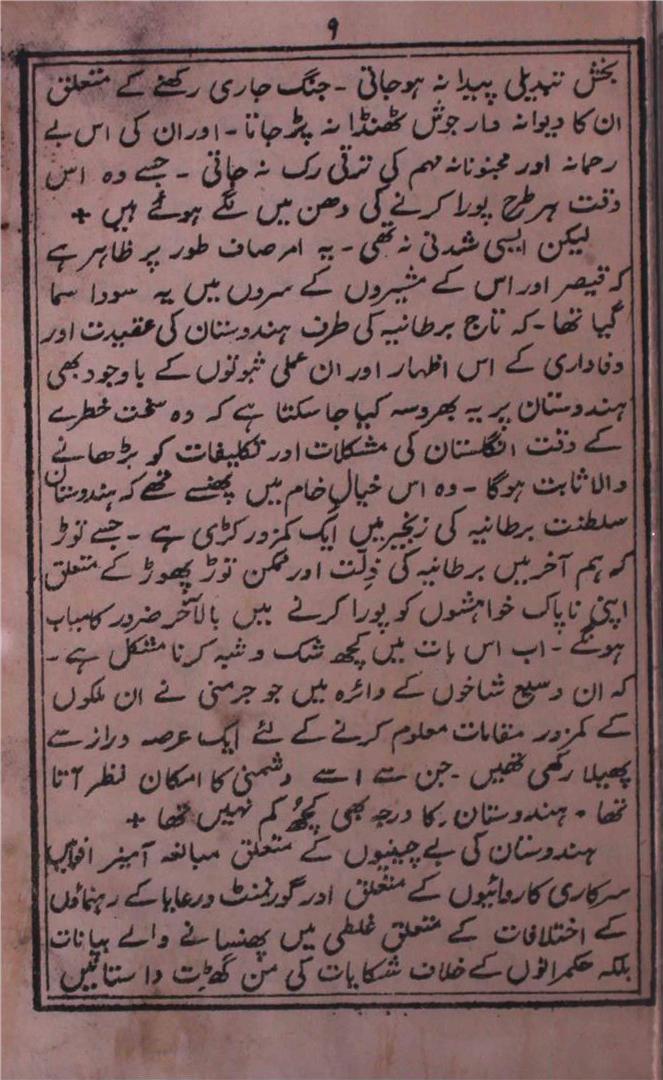 ۹
بخش تبدیلی پیدا نہ ہوجاتی ۔ جنگ جاری رکھنے کے متعلق
ان کا دیوانہ وار جوش ٹھنڈا نہ پڑ جاتا ۔ اور ان کی اس بے
رحمانہ اور مجنونانہ مہم کی ترقی رک نہ جاتی ۔ جسے وہ اس
وقت ہر طرح پورا کرنے کی دھن میں لگے ہوئے ہیں +
لیکن ایسی شدنی نہ تھی ۔ یہ امر صاف طور پر ظاہر ہے
کہ قیصر اور اس کے مشیروں کے سروں میں یہ سودا سما
گیا تھا ۔ کہ تاج برطانیہ کی طرف ہندوستان کی عقیدت اور
وفاداری کے اس اظہار اور ان عملی ثبوتوں کے باوجود بھی
ہندوستان پر یہ بھروسہ کیا جا سکتا ہے کہ وہ سخت خطرے
کے وقت انگلستان کی مشکلات اور تکلیفات کو بڑھانے
والا ثابت ہوگا ۔ وہ اس خیال خام میں پھنسے تھے کہ ہندوستان
سلطنت برطانیہ کی زنجیر میں ایک کمزور کڑی ہے ۔ جسے توڑ
کہ ہم آخر میں برطانیہ کی ذِلّت اور ممکن توڑ پھوڑ کے متعلق
اپنی ناپاک خواہشوں کو پورا کرنے میں بالآخر ضرور کامیاب
ہونگے ۔ اب اس بات میں کچھ شک و شبہ کرنا مشکل ہے ۔
کہ ان وسیع شاخوں کے دائرہ میں جو جرمنی نے ان ملکوں
کے کمزور مقامات معلوم کرنے کے لئے ایک عرصہ دراز سے
پھیلا رکھی تھیں ۔ جن سے اسے دشمنی کا امکان نظر آتا
تھا ۔ ہندوستان کا درجہ بھی کچھ کم نہیں تھا +
ہندوستان کی بے چینیوں کے متعلق مبالغہ آمیز افواہیں
سرکاری کاروائیوں کے متعلق اور گورنمنٹ و رعایا کے رہنماؤں
کے اختلافات کے متعلق غلطی میں پھنسانے والے بیانات
بلکہ حکمرانوں کے خلاف شکایات کی من گھڑت داستانیں